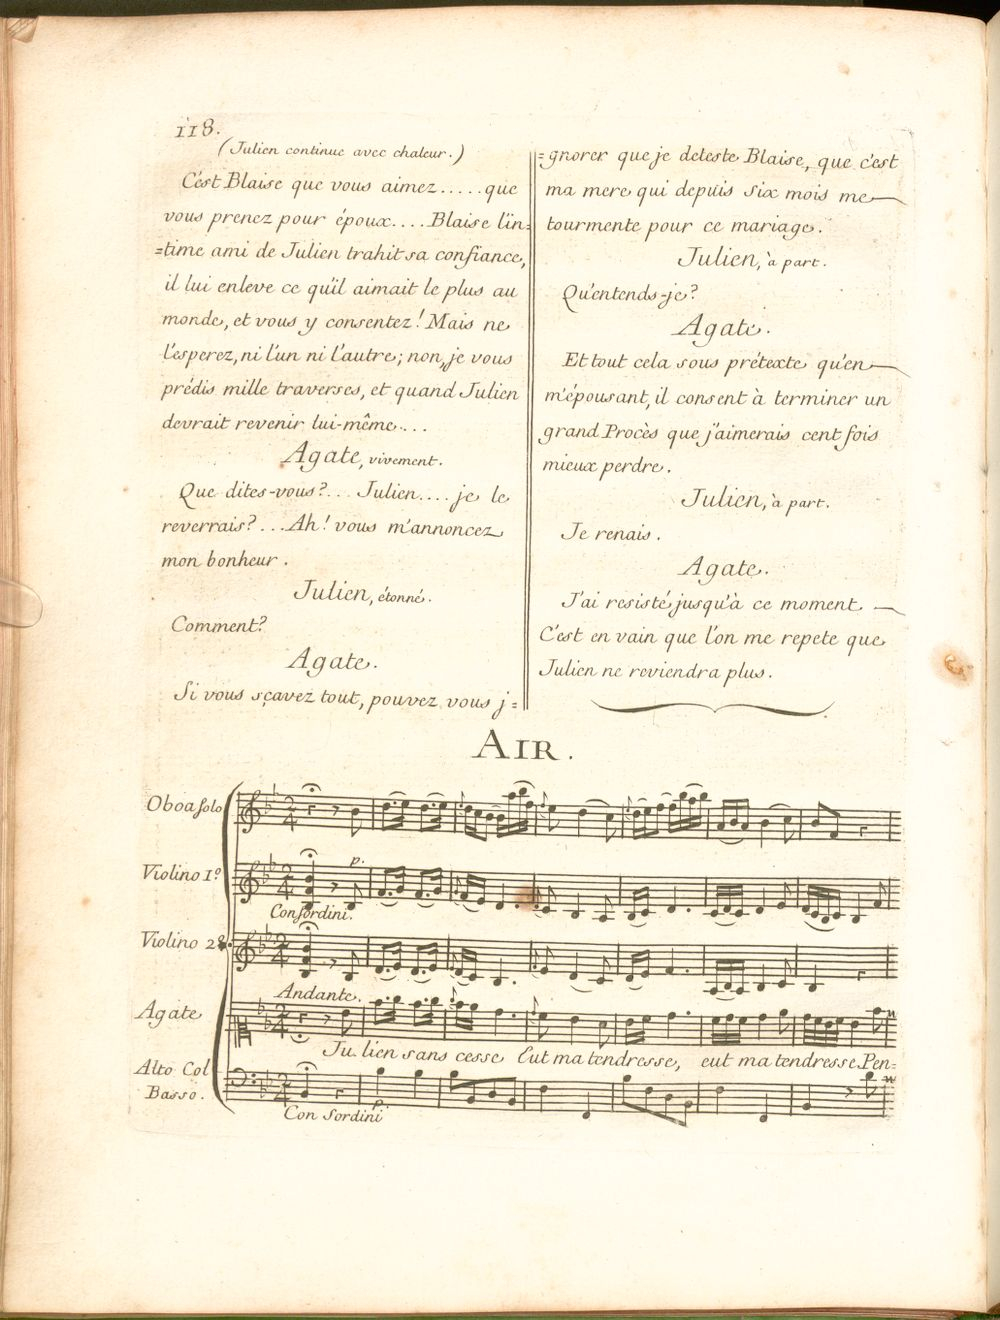 118.
(Julien continue avec chaleur.)
C'est Blaise que vous aimez.....que
vous prenez pour époux....Blaise l'in=
=time ami de Julien trahit sa confiance,
il lui enleve ce qu'il aimait le plus au
monde, et vous y consentez! Mais ne
l'esperez, ni l'un ni l'autre; non, je vous
prédis mille traverses, et quand Julien
devrait revenir lui-même....
Agate, vivement.
Que dites-vous?... Julien.... je le
reverrais? ...Ah! vous m'annoncez
mon bonheur.
Julien, étonné.
Comment?
Agate.
Si vous sçavez tout, pouvez vous j=
=gnorer que je deteste Blaise, que c'est
ma mere qui depuis six mois me
tourmente pour ce mariage.
Julien, à part.
Qu'entends-je?
Agate.
Et tout cela sous prétexte qu'en
m'épousant, il consent à terminer un
grand Procès que j'aimerais cent fois
mieux perdre.
Julien, à part.
Je renais.
Agate.
J'ai resisté jusqu'à ce moment
C'est en vain que l'on me repete que
Julien ne reviendra plus.
AIR.
Oboa solo
Violino 1º
p.
Con sordini.
Violino 2º.
Andante.
Agate
Ju_lien sans cesse Eut ma tendresse, eut ma tendresse Pen=
Alto Col
Basso.
p.
Con sordini